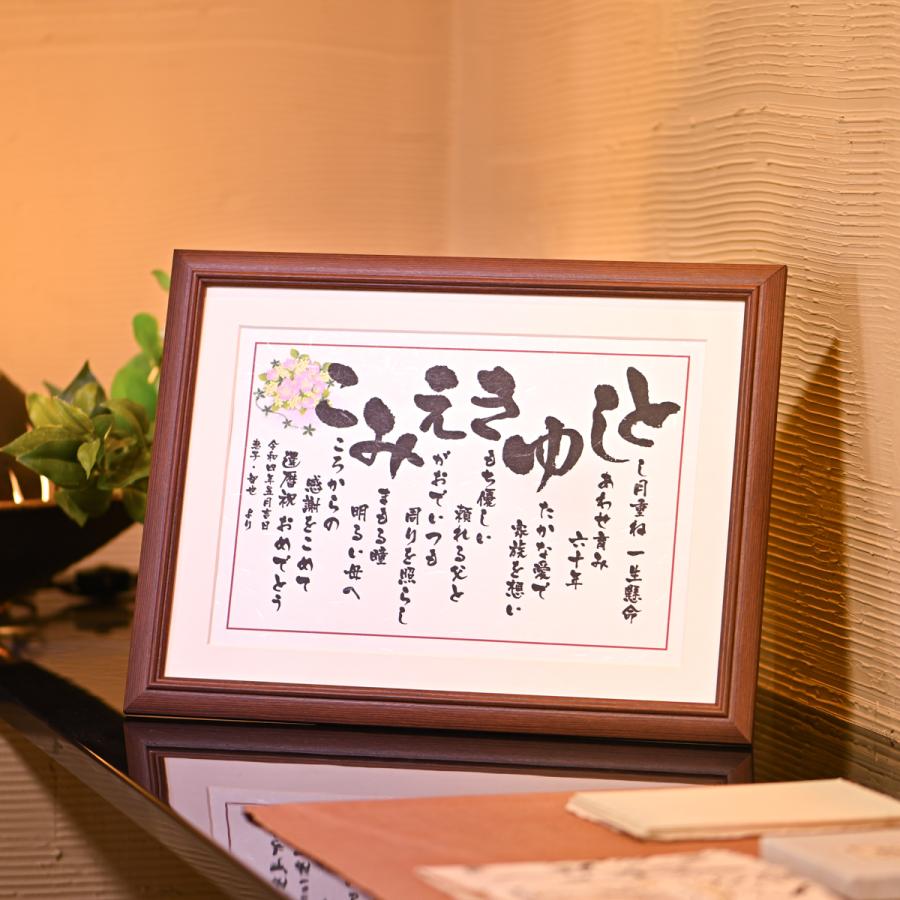 とし月重ね 一生懸命
しあわせ育み
六十年
ゆたかな愛で
家族を想い
きもち優しい
頼れる父と
えがおでいつも
周りを照らし
みまもる瞳
明るい母へ
こころからの
感謝をこめて
還暦祝おめでとう
令和四年五月吉日
より